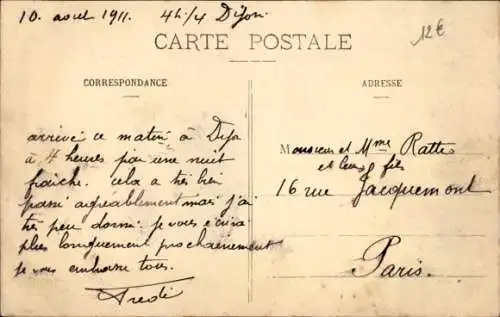 10. aout 1911. 4h/4 Dijon
12€
CARTE POSTALE
CORRESPONDANCE
arrivé ce matin à Dijon
à 4 heures par une nuit
fraiche. cela a très bien
passé agréablement mais j'ai
très peu dormi. je vous écrirai
plus longuement prochainement
je vous embrasse tous.
Fredi
ADRESSE
Monsieur et Mme Ratte
et leurs fils
16 rue Jacquemont
Paris.